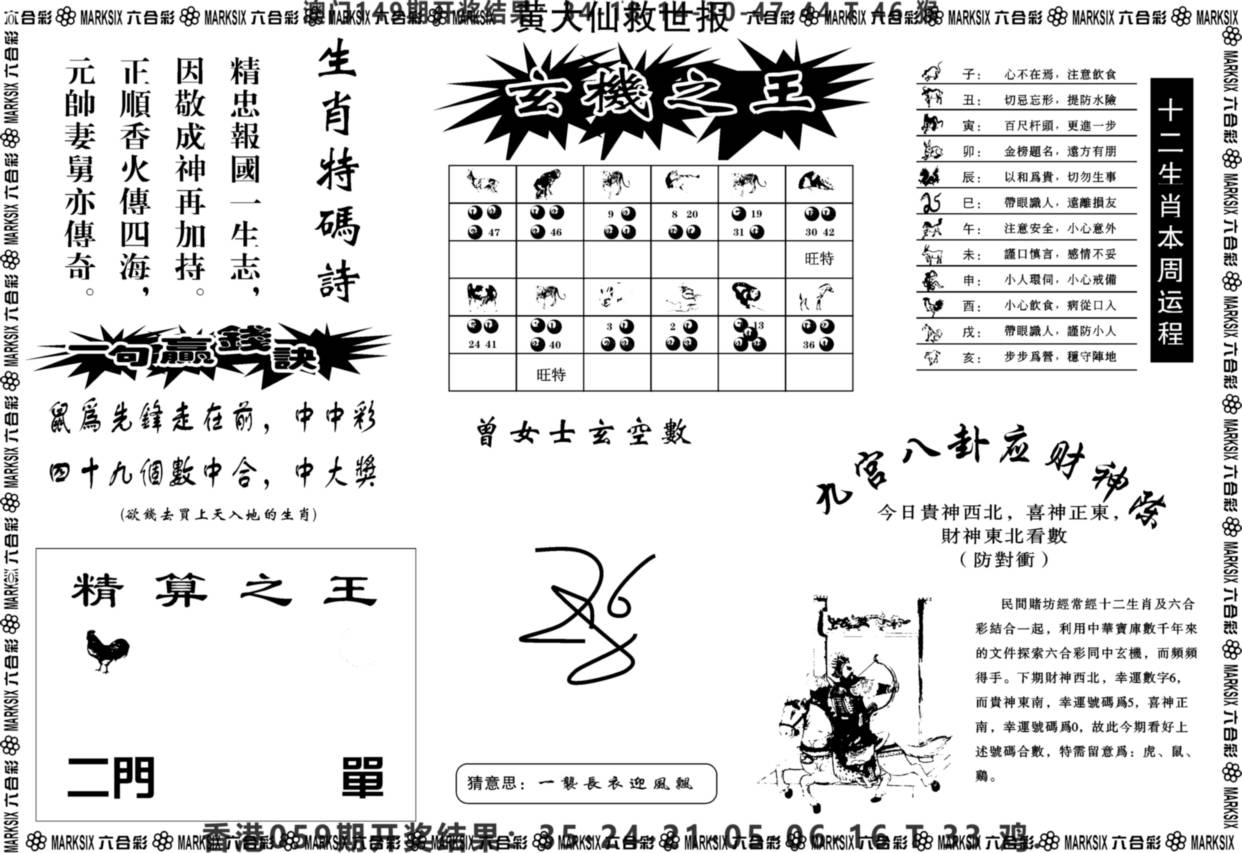 黄大仙救世报
生肖特碼詩
精忠報國一生志，
因敬成神再加持。
正順香火傳四海，
元帥妻舅亦傳奇。
一句贏錢訣
鼠爲先鋒走在前，中中彩
四十九個數中合，中大獎
(欲錢去買上天入地的生肖)
精算之王
二門
單
玄機之王
47
46
9
8 20
19
31
30 42
旺特
24 41
40
3
2
13
36
旺特
曾女士玄空數
猜意思：一襲長衣迎風飄
十二生肖本周运程
子：心不在焉，注意飲食
丑：切忌忘形，提防水險
寅：百尺杆頭，更進一步
卯：金榜題名，遠方有朋
辰：以和爲貴，切勿生事
巳：帶眼識人，遠離損友
午：注意安全，小心意外
未：謹口慎言，感情不妥
申：小人環伺，小心戒備
酉：小心飲食，病從口入
戌：帶眼識人，謹防小人
亥：步步爲營，穩守陣地
九宮八卦应财神祭
今日貴神西北，喜神正東，
財神東北看數
（防對衝）
民間賭坊經常經十二生肖及六合
彩結合一起，利用中華寶庫數千年來
的文件探索六合彩同中玄機，而頻頻
得手。下期財神西北，幸運數字6，
而貴神東南，幸運號碼爲5，喜神正
南，幸運號碼爲0，故此今期看好上
述號碼合數，特需留意爲：虎、鼠、
鷄。
香港059期开奖结果：35 24 31 05 06 16 T 33 鸡
MARKSIX 六合彩